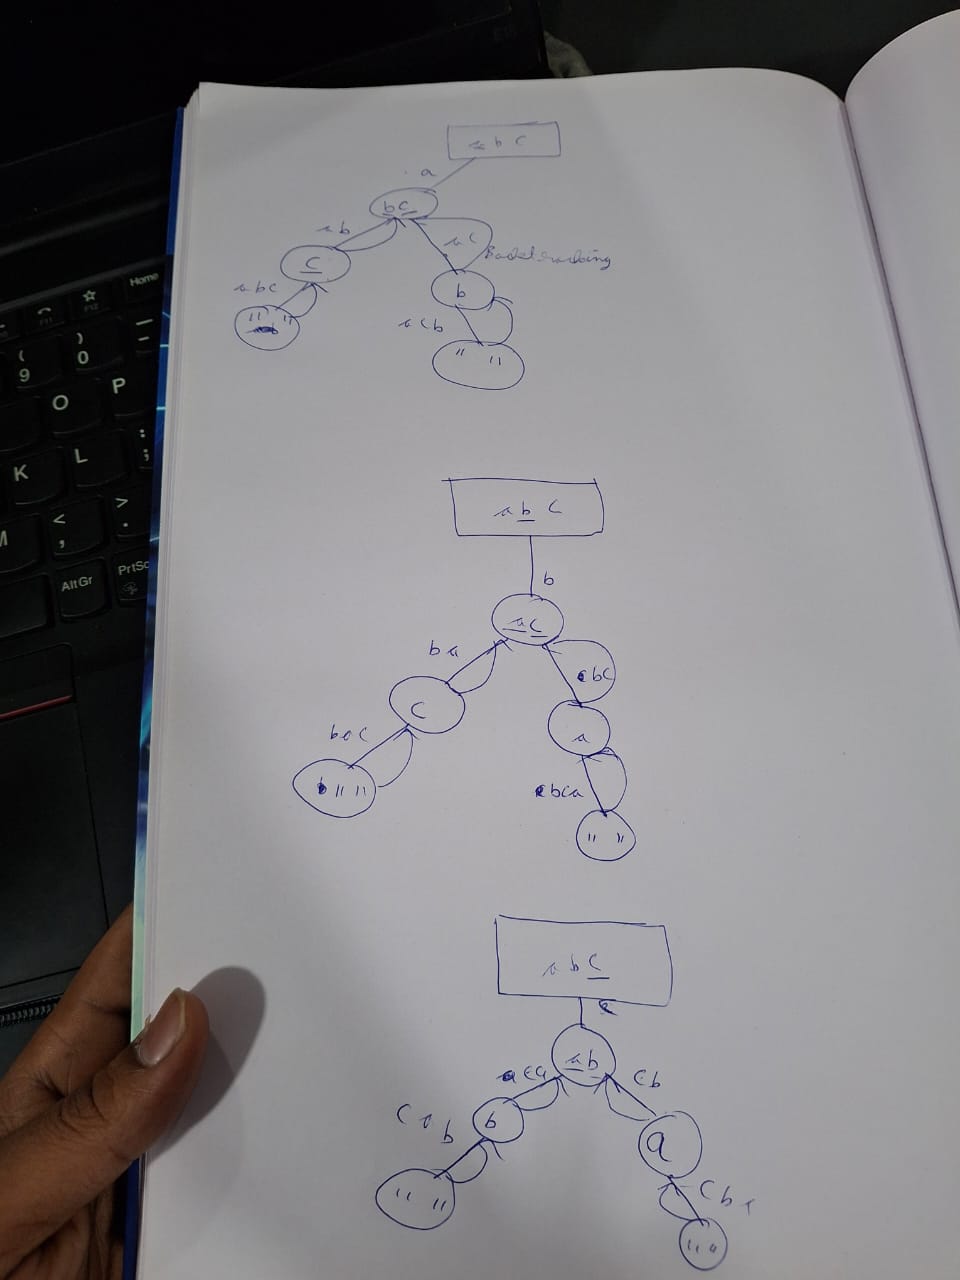 a b c
a
bc
ab
ac
Backtracking
c
abc
b
acb
" "
" "
a b c
b
ac
ba
bc
c
a
bac
" "
bca
" "
a b c
c
ab
ca
cb
b
a
cab
cba
" "
" "
Home
F11
F12
(
9
)
0
-
O
P
:
;
K
L
<
,
>
.
M
AltGr
PrtSc